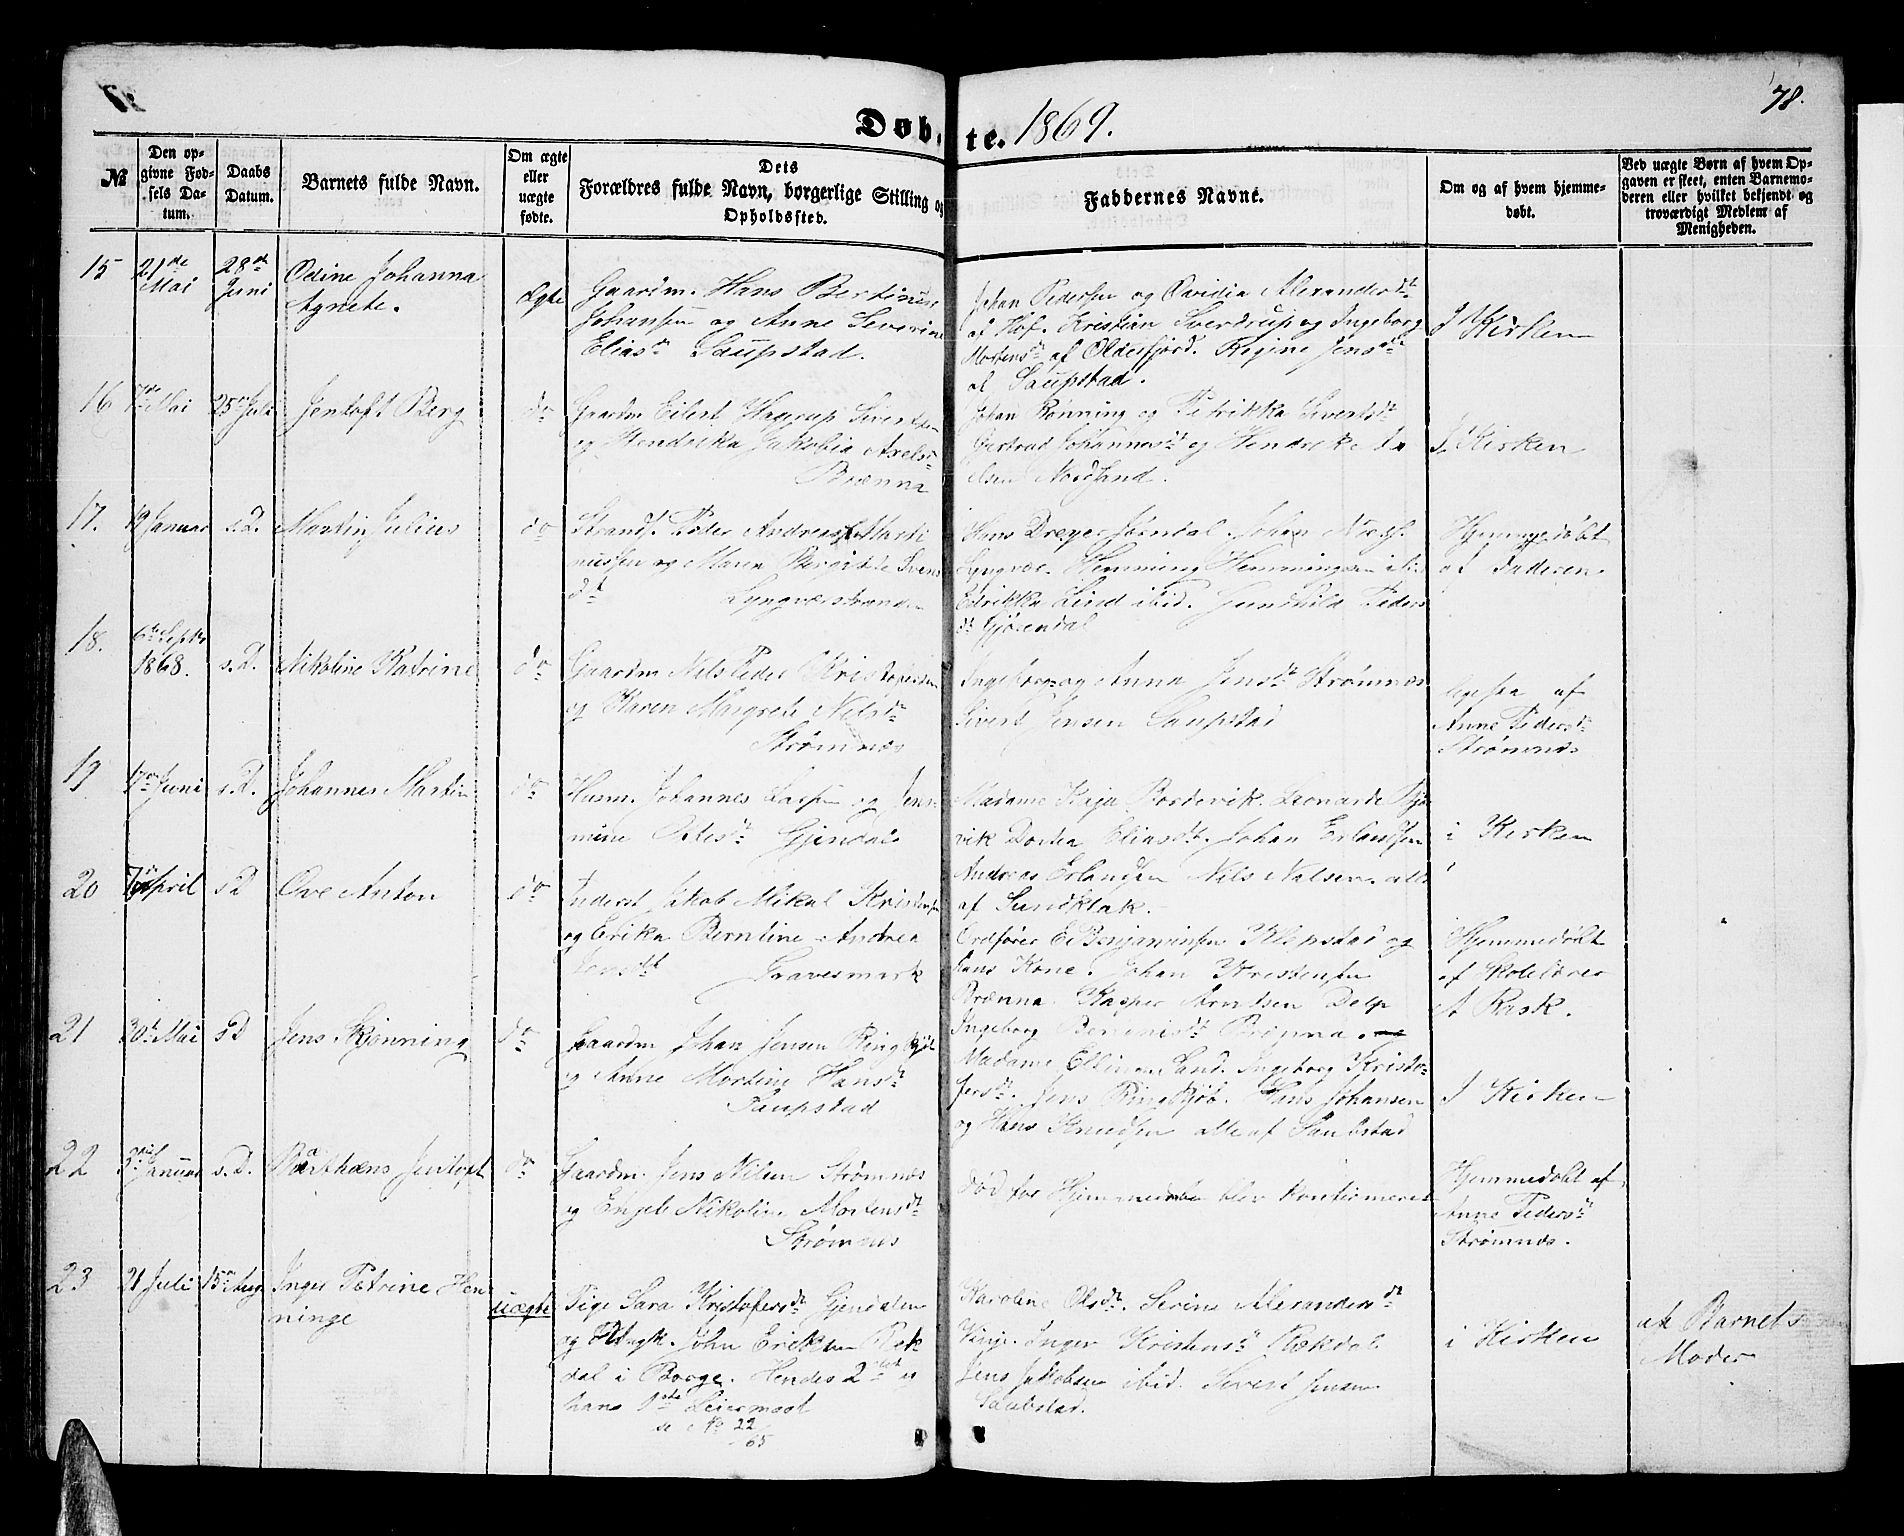 78.
Døbte. 1869.
№
Den opgivne Fødsels Datum.
Daabs Datum.
Barnets fulde Navn.
Om ægte eller uægte fødte.
Dets Forældres fulde Navn, borgerlige Stilling og Opholdssted.
Faddernes Navne.
Om og af hvem hjemmedøbt.
Ved uægte Børn af hvem Opgaven er skeet, enten Barnemoderen eller hvilket bekjendt og troværdigt Medlem af Menigheden.
15
21de Mai
28de Juni
Odine Johanna
Agnete.
Ægte
Gaardm. Hans Bertinus
Johansen og Anne Severine
Eliasdt Saupstad.
Johan Pedersen og Ovidia Alexandersdt
af Hof. Kristian Sverdrup og Ingeborg
Mortensdt af Olderfjord. Regine Jensdt
af Saupstad.
I Kirken
16
7de Mai
25de Juli
Jentoft Berg
do
Gaardm Eilert Hagrup Sivertsen
og Hendrika Jakobia Axelsdt
Brænna
Johan Rønning og Petrikka Sivertsdt
Johannesdt og Hendrikke
Nordsand.
I Kirken
17.
19 Januar
s.D.
Martin Julius
do
Strands. Peder Andreas Marti
nussen og Maren Birgitte Svens
dt Lyngværstranden
Hans Dreyer Jørndal. Johan
Lyngvær. Hemming Hemmingsen
Lind ibid. Gundhild Peders
dt Gjørendal
Hjemmedøbt
af Faderen
18.
6te Septbr
1868.
s.D.
Nikoline Katrine
do
Gaardm Nils Peder Kristofersen
og Karen Margrete Nilsdt
Strømnæs
Ingeborg og Anna Jensdt Strømnæs
Sivert Jensen Saupstad
ligesaa af
Anne Pedersdt
Strømnæs
19
17de Juni
s.D.
Johannes Martin
do
Husm. Johannes Larsen og Jens-
mine Olesdt Gjendal
Madame Kaja Bordevik. Leonarde
vik Dortea Eliasdt. Johan Erlandsen
Andreas Erlandsen Nils Nilsen. alle
af Sundklak.
i Kirken
20
7de April
s D
Ove Anton
do
Inderst Jakob Mikal Kristensen
og Erika Berntine Andrea
Jensdt Gravermark
Ordfører E Benjaminsen Klepstad og
hans Kone. Johan Kristensen
Brænna. Kasper Arntsen Delp
Ingeborg Brænna.
Hjemmedøbt
af Skolelærer
A Rask.
21
30te Mai
s D
Jens Skjønning
do
Gaardm Johan Jensen Ringkjøb
og Anne Mortine Hansdt
Saupstad
Madame Elline Sand. Ingeborg Kristo-
fersdt. Jens Ringkjøb. Hans Johansen
og Hans Knudsen alle af Saubstad
I Kirken
22
3die Januar
s.D.
Jentoft
do
Gaardm. Jens Nilsen Strømnæs
og Engel Nikoline Mortensdt
Strømnæs
død før Hjemmedøben blev konfirmeret
Hjemmedøbt af
Anne Pedersdt
Strømnæs.
23
21 Juli
15de Aug
Inger Petrine Hen
ninge
uægte
Pige Sara Kristofersdt Gjendalen
og Ungk. John Eriksen Bæk
dal i Borge. Hendes 2det og
hans 1ste Leiermaal
se No 22/65
Karoline Olsdt. Serine Alexandersdt
Vinje. Inger Kristensdt Bækdal
Jens Jakobsen ibid. Sivert Jensen
Saubstad.
i Kirken
at Barnets
Moder